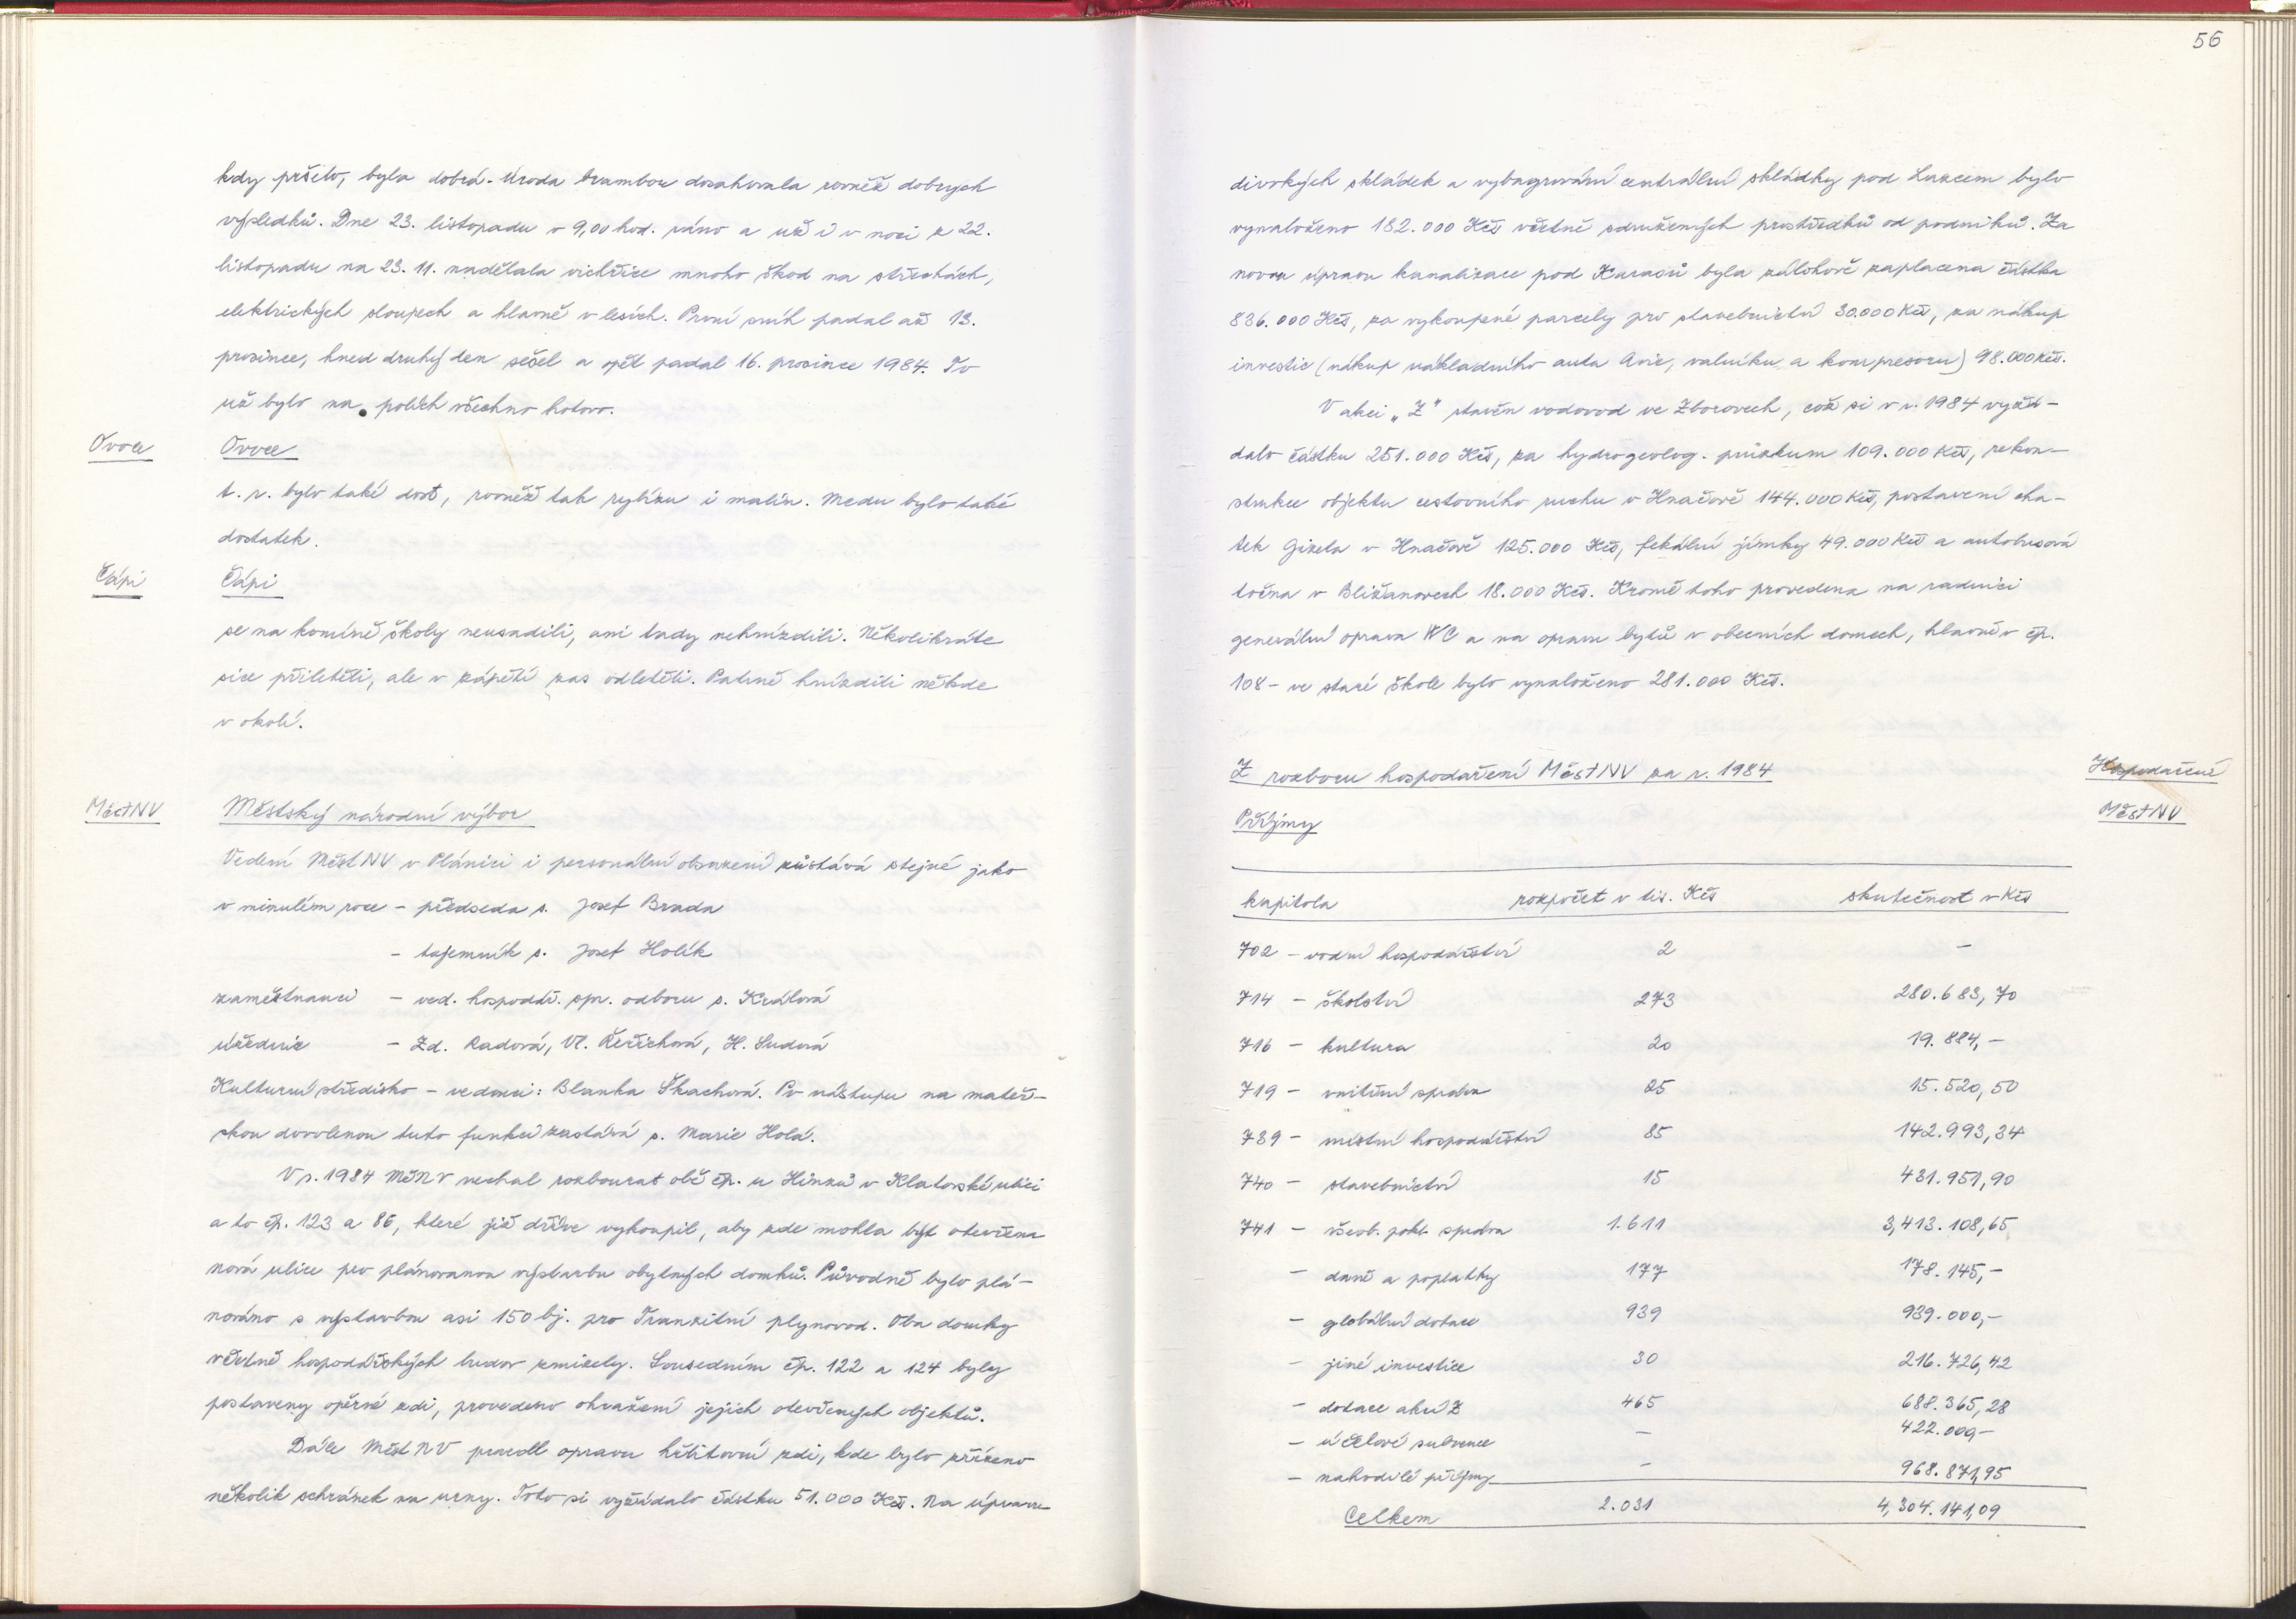 kdy pršelo, byla dobrá. Úroda brambor dosahovala rovněž dobrých
výsledků. Dne 23. listopadu v 9,00 hod. ráno a už i v noci z 22.
listopadu na 23. 11. nadělala vichřice mnoho škod na střechách,
elektrických sloupech a hlavně v lesích. První sníh padal až 13.
prosince, hned druhý den sešel a opět padal 16. prosince 1984. To
už bylo na polích všechno hotovo.
Ovoce
Ovoce
t. r. bylo také dost, rovněž tak rybízu i malin. Medu bylo také
dostatek.
Čápi
Čápi
se na komíně školy neusadili, ani tady nehnízdili. Několikráte
sice přiletěli, ale v zápětí zas odletěli. Patrně hnízdili někde
v okolí.
MěstNV
Městský národní výbor
Vedení MěstNV v Plánici i personální obsazení zůstává stejné jako
v minulém roce - předseda s. Josef Brada
- tajemník s. Josef Holík
zaměstnanci - ved. hospodář. spr. odboru s. Králová
úřednice - Zd. Radová, Vl. Řeřichová, H. Sudová
Kulturní středisko - vedoucí: Blanka Škachová. Po nástupu na mateř-
skou dovolenou tuto funkci zastává s. Marie Holá.
V r. 1984 MěNV nechal rozbourat obě čp. u Hinzů v Klatovské ulici
a to čp. 123 a 86, které již dříve vykoupil, aby zde mohla být otevřena
nová ulice pro plánovanou výstavbu obytných domků. Původně bylo plá-
nováno s výstavbou asi 150 bj. pro Tranzitní plynovod. Oba domky
včetně hospodářských budov zmizely. Sousedním čp. 122 a 124 byly
postaveny opěrné zdi, provedeno ohrazení jejich otevřených objektů.
Dále MěstNV provedl opravu hřbitovní zdi, kde bylo zřízeno
několik schránek na urny. Toto si vyžádalo částku 51.000 Kčs. Na úpravu
56
divokých skládek a vybagrování centrální skládky pod Lazcem bylo
vynaloženo 182.000 Kčs včetně sdružených prostředků od podniků. Za
novou úpravu kanalizace pod Karasů byla zálohově zaplacena částka
836.000 Kčs, za vykoupené parcely pro stavebnictví 30.000 Kčs, za nákup
investic (nákup nákladního auta Avie, valníku a kompresoru) 98.000 Kčs.
V akci „Z" stavěn vodovod ve Zborovech, což si v r. 1984 vyžá-
dalo částku 251.000 Kčs, za hydrogeolog. průzkum 109.000 Kčs, rekon-
strukce objektu cestovního ruchu v Hnačově 144.000 Kčs, postavení cha-
tek Gizela v Hnačově 125.000 Kčs, fekální jímky 49.000 Kčs a autobusová
točna v Bližanovech 18.000 Kčs. Kromě toho provedena na radnici
generální oprava WC a na opravu bytů v obecních domech, hlavně v čp.
108 - ve staré škole bylo vynaloženo 281.000 Kčs.
Z rozboru hospodaření MěstNV za r. 1984
Hospodaření
MěstNV
Příjmy
kapitola rozpočet v tis. Kčs skutečnost v Kčs
702 - vodní hospodářství 2 -
714 - školství 273 280.683,70
716 - kultura 20 19.884,-
719 - vnitřní správa 25 15.520,50
739 - místní hospodářství 85 142.993,34
740 - stavebnictví 15 431.951,90
741 - všeob. pokl. správa 1.611 3,413.108,65
- daně a poplatky 177 178.145,-
- globální dotace 939 939.000,-
- jiné investice 30 216.726,42
- dotace akcí Z 465 688.365,28
- účelové subvence - 422.000,-
- nahodilé příjmy - 968.871,95
Celkem 2.031 4,304.141,09